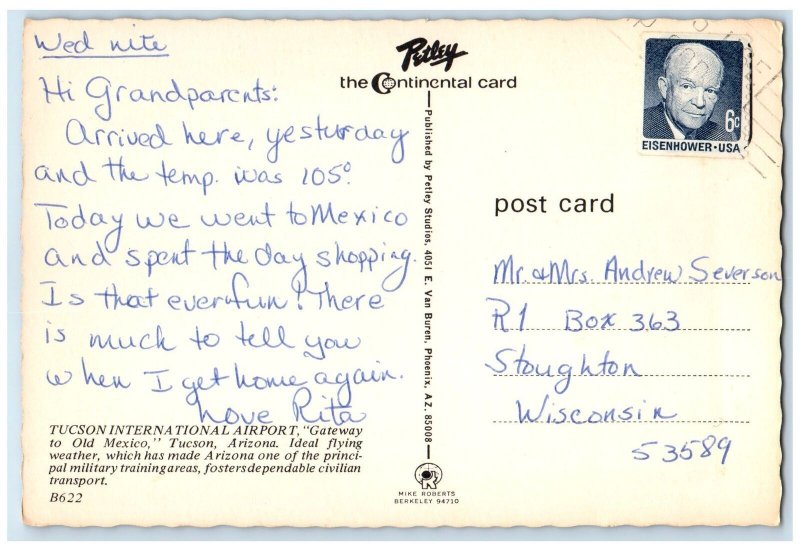 Wed nite
Hi Grandparents:
Arrived here, yesturday
and the temp. was 105°.
Today we went to Mexico
and spent the day shopping.
Is that ever fun! There
is much to tell you
when I get home again.
Love Rita
TUCSON INTERNATIONAL AIRPORT, "Gateway
to Old Mexico," Tucson, Arizona. Ideal flying
weather, which has made Arizona one of the princi-
pal military training areas, fosters dependable civilian
transport.
B622
Petley
the Continental card
Published by Petley Studios, 4051 E. Van Buren, Phoenix, AZ. 85008
MIKE ROBERTS
BERKELEY 94710
6c
EISENHOWER · USA
post card
Mr. & Mrs. Andrew Severson
R1 Box 363
Stoughton
Wisconsin
53589